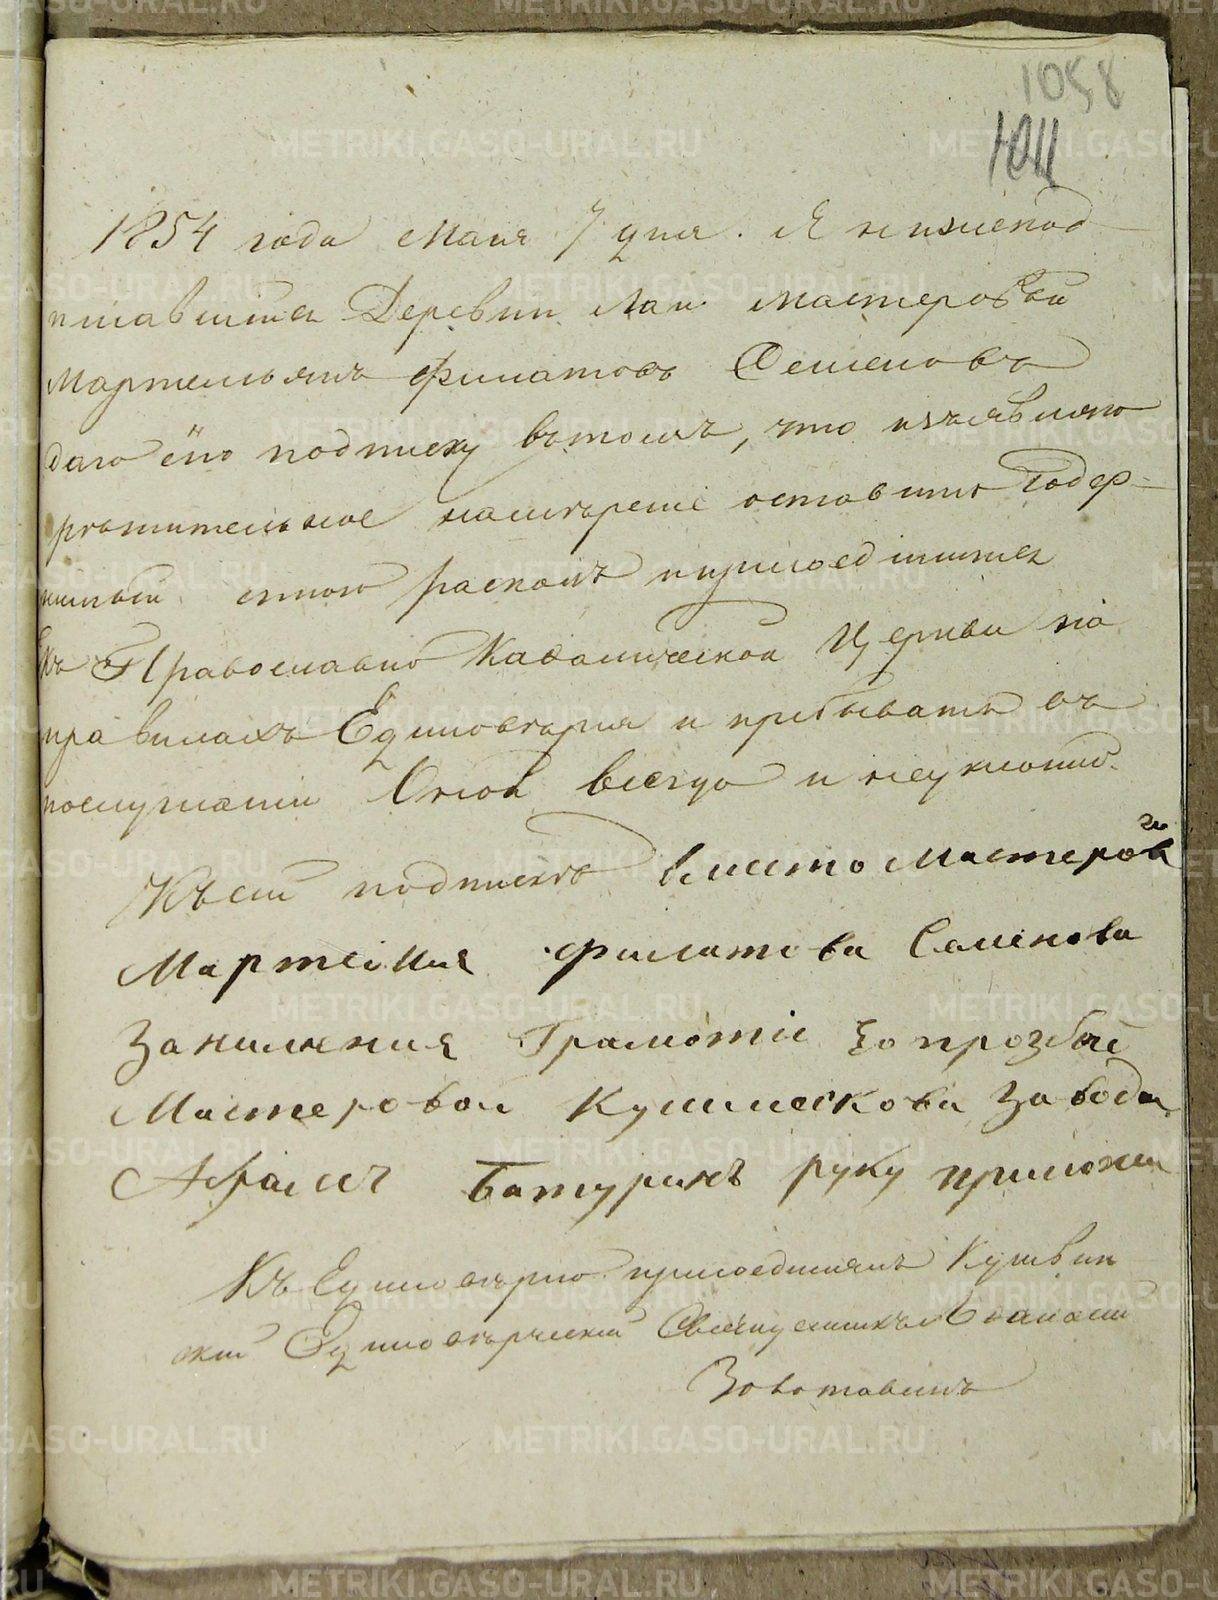 1058
1854 года Мая 7 дня. Я нижепод
писавшійся Деревни Лаи мастеровый
Мартемьянъ Филатовъ Семеновъ
даю сію подписку въ томъ, что изъявляю
рѣшительное намѣреніе оставить содер-
жимый мною расколъ и присоединится
къ Православно Каѳолической Церкви на
правилахъ Единовѣрія и пребывать въ
послушаніи Оной всегда и неуклонно.
Къ сей подпискѣ вместо Мастерова
го
Филатова Семенова
грамоте по прозбые
Мастеровой завода
Батуринъ руку приложил
Къ Единовѣрію присоединилъ Кушвин
скій Единовѣрческій Священникъ
METRIKI.GASO-URAL.RU